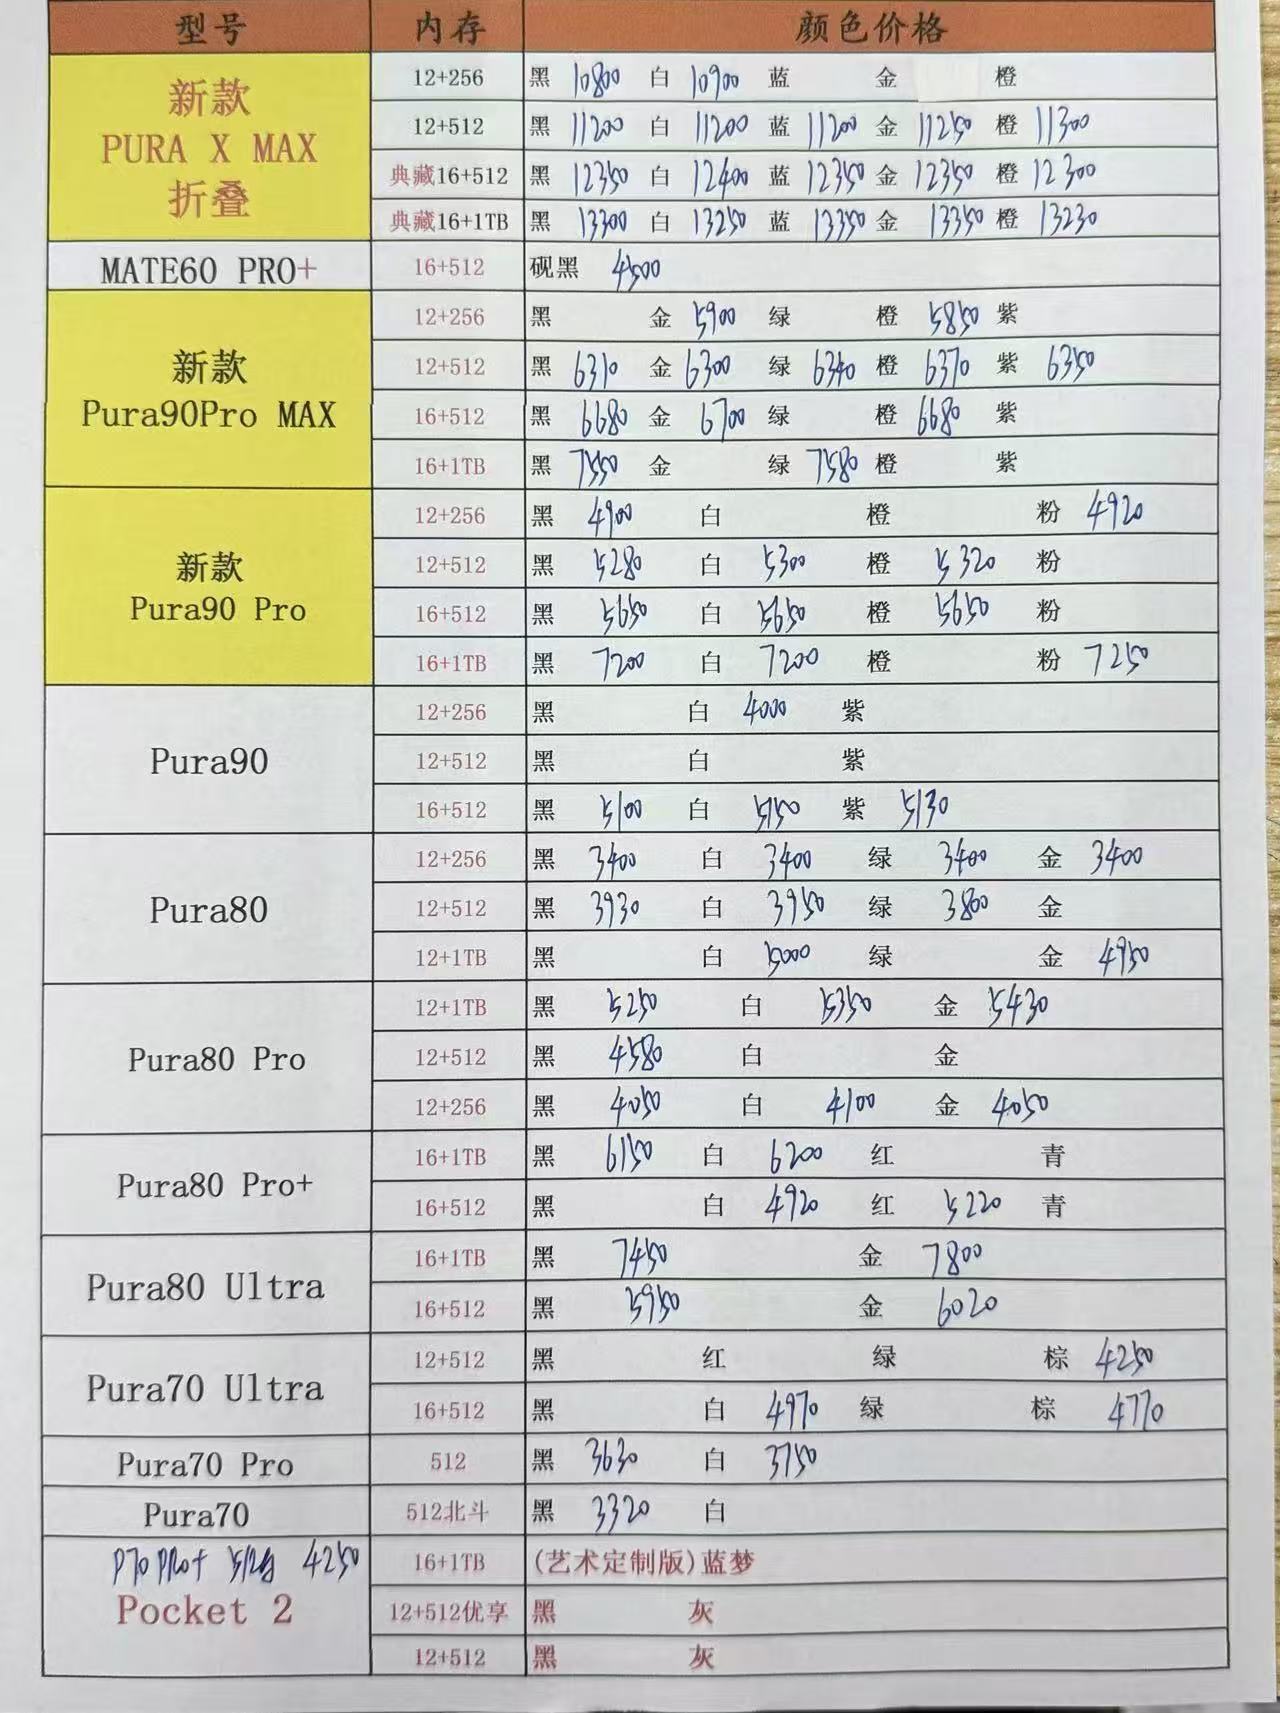 型号 内存 颜色价格
新款
PURA X MAX
折叠
12+256 黑 10800 白 10900 蓝 金 橙
12+512 黑 11200 白 11200 蓝 11200 金 11250 橙 11300
典藏16+512 黑 12350 白 12400 蓝 12350 金 12350 橙 12300
典藏16+1TB 黑 13300 白 13250 蓝 13350 金 13350 橙 13230
MATE60 PRO+ 16+512 砚黑 4500
新款
Pura90Pro MAX
12+256 黑 金 5900 绿 橙 5850 紫
12+512 黑 6310 金 6300 绿 6340 橙 6370 紫 6350
16+512 黑 6680 金 6700 绿 橙 6680 紫
16+1TB 黑 7550 金 绿 7580 橙 紫
新款
Pura90 Pro
12+256 黑 4900 白 橙 粉 4920
12+512 黑 5280 白 5300 橙 5320 粉
16+512 黑 5650 白 5650 橙 5650 粉
16+1TB 黑 7200 白 7200 橙 粉 7250
Pura90
12+256 黑 白 4000 紫
12+512 黑 白 紫
16+512 黑 5100 白 5150 紫 5130
Pura80
12+256 黑 3400 白 3400 绿 3400 金 3400
12+512 黑 3930 白 3950 绿 3800 金
12+1TB 黑 白 5000 绿 金 4950
Pura80 Pro
12+1TB 黑 5250 白 5350 金 5430
12+512 黑 4580 白 金
12+256 黑 4050 白 4100 金 4050
Pura80 Pro+
16+1TB 黑 6150 白 6200 红 青
16+512 黑 白 4920 红 5220 青
Pura80 Ultra
16+1TB 黑 7450 金 7800
16+512 黑 5950 金 6020
Pura70 Ultra
12+512 黑 红 绿 棕 4250
16+512 黑 白 4970 绿 棕 4770
Pura70 Pro 512 黑 3630 白 3750
Pura70 512北斗 黑 3320 白
P70 PRO+ 512G 4250
Pocket 2
16+1TB (艺术定制版)蓝梦
12+512优享 黑 灰
12+512 黑 灰